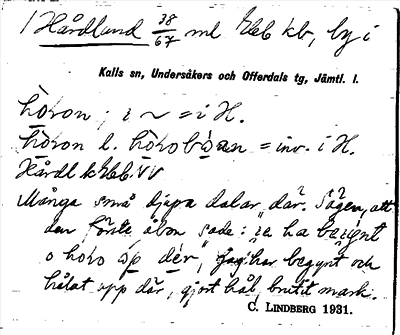 1 Hårdland 38/67 ml Ebb kb, by i
Kalls sn, Undersåkers och Offerdals tg, Jämtl. l.
hòron; i ~ = i H.
hòron l. hòrobòan = inv. i H.
Hårdl k Ebb. VV
Många små djupa dalar där. Sägen, att
den förste åbon sade: "ja ha begynt
o hoło op dér", "jag har begynt och
hålat upp där, gjort hål, brutit mark.
C. LINDBERG 1931.